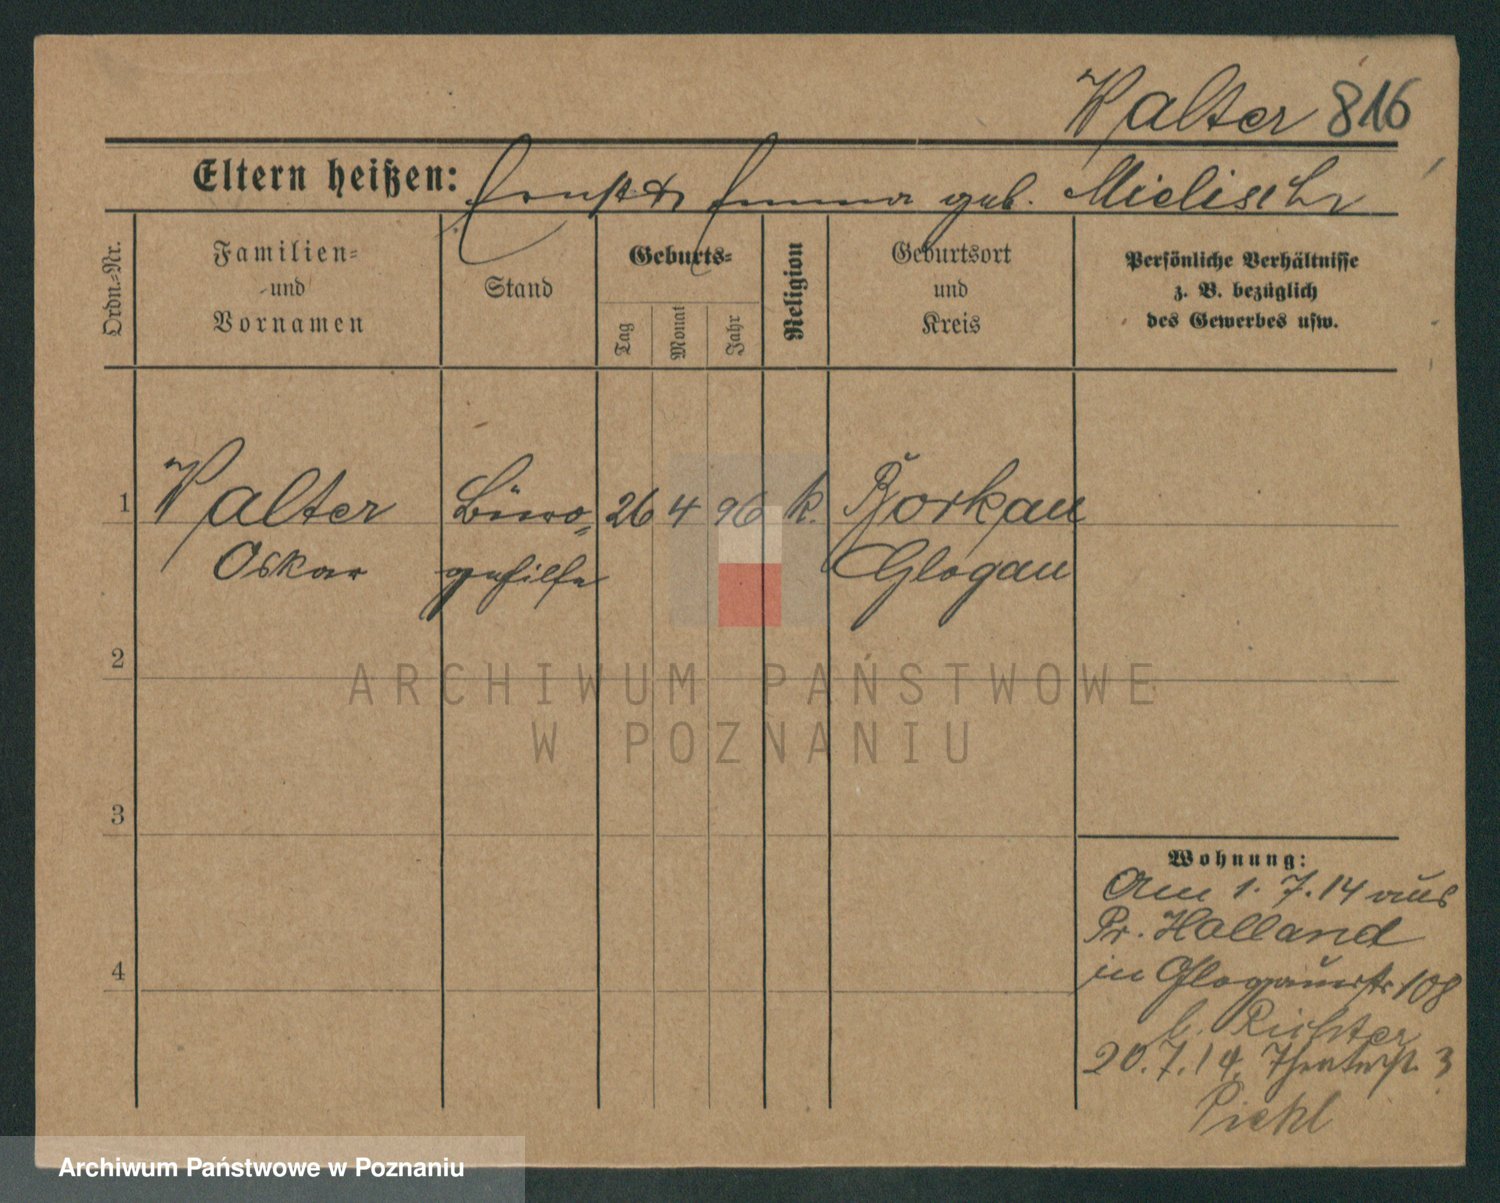 Walter 816
Eltern heißen: Ernst & Emma geb. Mielisch
Ordn.-Nr.
Familien-
und
Vornamen
Stand
Geburts-
Tag
Monat
Jahr
Religion
Geburtsort
und
Kreis
Persönliche Verhältnisse
z. B. bezüglich
des Gewerbes usw.
1 Walter Büro- 26 4 96 k. Borkau
Oskar gehilfe Glogau
2
ARCHIWUM PAŃSTWOWE
W POZNANIU
3
Wohnung:
Am 1. 7. 14 aus
Pr. Holland
4
in Glogauerstr 108
b. Richter
20. 7. 14. Theaterstr. 3
Piehl
Archiwum Państwowe w Poznaniu